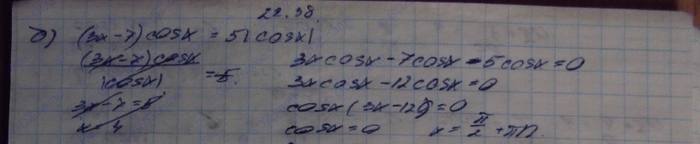 22.38.
б) (3x-7)cosx = 5|cosx|
(3x-7)cosx / |cosx| = 5.
3x-7=5
x=4
3xcosx-7cosx-5cosx=0
3xcosx-12cosx=0
cosx(3x-12)=0
cosx=0 x=π/2+πn